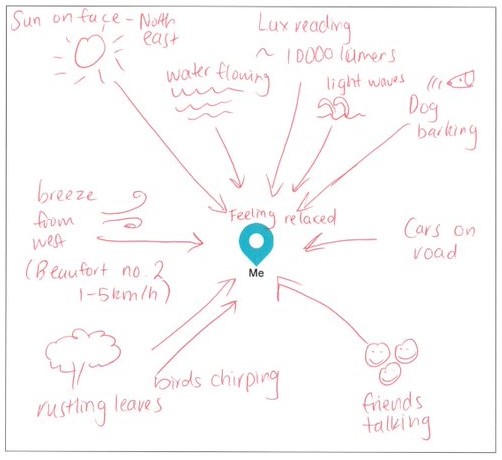 Sun on face - North
east
Lux reading
~ 10000 lumers
water flowing
light waves
Dog
barking
breeze
from
west
(Beaufort no. 2
1-5km/h)
Feeling relaxed
Me
Cars on
road
rustling leaves
birds chirping
friends
talking